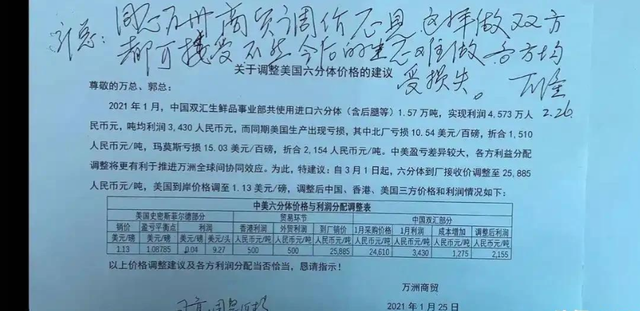 同意万洲商贸调价意见 这样做双方
都可接受 不然今后的生意难做 各方均
受损失。 万隆
2.26
关于调整美国六分体价格的建议
尊敬的万总、郭总：
2021 年 1 月，中国双汇生鲜品事业部共使用进口六分体（含后腿等）1.57 万吨，实现利润 4,573 万人
民币元，吨均利润 3,430 人民币元，而同期美国生产出现亏损，其中北厂亏损 10.54 美元/百磅，折合 1,510
人民币元/吨，玛莫斯亏损 15.03 美元/百磅，折合 2,154 人民币元/吨。中美盈亏差异较大，各方利益分配
调整将更有利于推进万洲全球间协同效应。为此，特建议：自 3 月 1 日起，六分体到厂接收价调整至 25,885
人民币元/吨，美国到岸价格调至 1.13 美元/磅，调整后中国、香港、美国三方价格和利润情况如下：
中美六分体价格与利润分配调整表
美国史密斯菲尔德部分 贸易环节 中国双汇部分
销价 盈亏平衡点 利润 利润 香港利润 外贸利润 到厂销价 1月采购价格 1月利润 成本增加 调整后利润
美元/磅 美元/磅 美元/磅 美元/头 人民币元/吨 人民币元/吨 人民币元/吨 人民币元/吨 人民币元/吨 人民币元/吨 人民币元/吨
1.13 1.08785 0.04 9.27 500 500 25,885 24,610 3,430 1,275 2,155
以上价格调整建议及各方利润分配当否恰当，恳请指示！
万洲商贸
2021 年 1 月 25 日